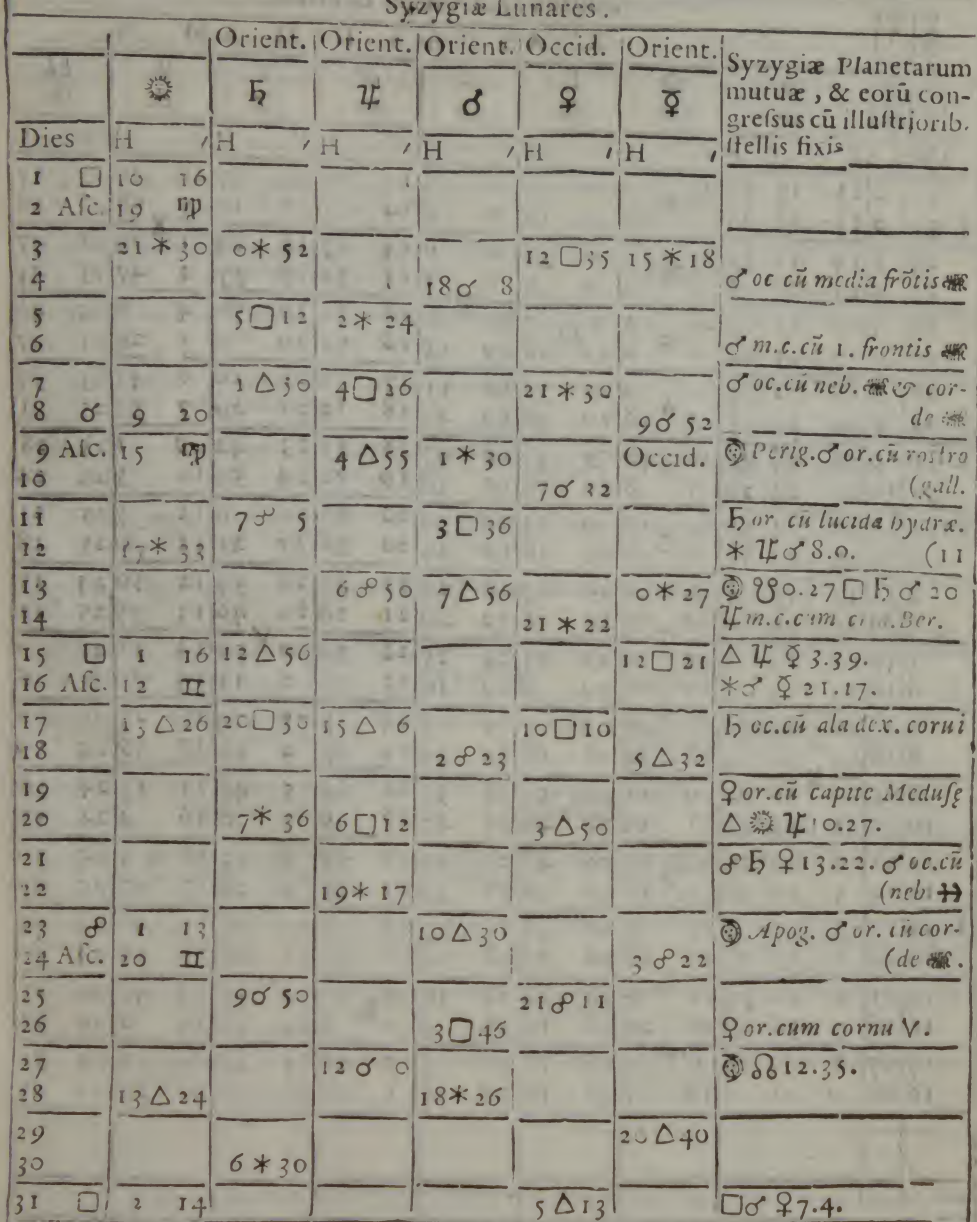 Syzygiæ Lunares.
Orient. Orient. Orient. Occid. Orient. Syzygiæ Planetarum
☼ ♄ ♃ ♂ ♀ ☿ mutuæ, & eorū con-
gressus cū illustriorib.
Dies H ′ H ′ H ′ H ′ H ′ H ′ stellis fixis
1 □ 10 16
2 Asc. 19 ♍
3 21 ✶ 30 0 ✶ 52 12 □ 35 15 ✶ 18
4 18 ☌ 8 ♂ oc cū media frōtis
5 5 □ 12 2 ✶ 24
6 ♂ m.c.cū 1. frontis
7 1 △ 30 4 □ 26 21 ✶ 30 ♂ oc.cū neb. & cor-
8 ☌ 9 20 9 ☌ 52 de
9 Asc. 15 ♍ 4 △ 55 1 ✶ 30 Occid. Perig. ♂ or.cū rostro
10 7 ☌ 32 (gall.
11 7 ☍ 5 3 □ 36 ♄ or. cū lucida hydræ.
12 17 ✶ 33 ✶ ♃ ♂ 8.0. (11
13 6 ☍ 50 7 △ 56 0 ✶ 27 ☋ 0.27 □ ♄ ♂ 20
14 21 ✶ 22 ♃ m.c.cum Ber.
15 □ 1 16 12 △ 56 12 □ 21 △ ♃ ☿ 3.39.
16 Asc. 12 ♊ ✶ ♂ ☿ 21.17.
17 13 △ 26 20 □ 30 15 △ 6 10 □ 10 ♄ oc.cū ala dex. corui
18 2 ☍ 23 5 △ 32
19 ♀ or.cū capite Medusę
20 7 ✶ 36 6 □ 12 3 △ 50 △ ☼ ♃ 10.27.
21 ☍ ♄ ♀ 13.22. ♂ oc.cū
22 19 ✶ 17 (neb.
23 ☍ 1 13 10 △ 30 Apog. ♂ or. cū cor-
24 Asc. 20 ♊ 3 ☍ 22 (de
25 9 ☌ 50 21 ☍ 11
26 3 □ 46 ♀ or.cum cornu ♈.
27 12 ☌ 0 ☊ 12.35.
28 13 △ 24 18 ✶ 26
29 20 △ 40
30 6 ✶ 30
31 □ 2 14 5 △ 13 □ ♂ ♀ 7.4.